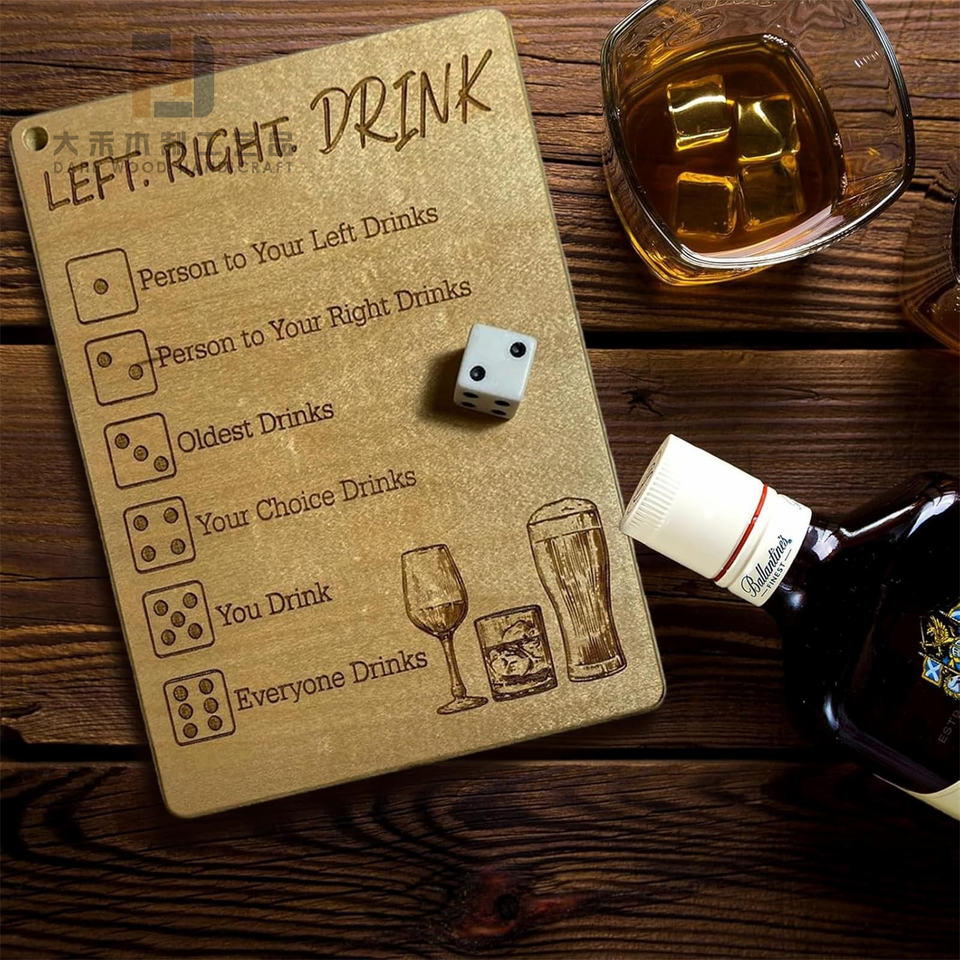 大禾木制工艺品
LEFT. RIGHT. DRINK
Person to Your Left Drinks
Person to Your Right Drinks
Oldest Drinks
Your Choice Drinks
You Drink
Everyone Drinks
Ballantine's
FINEST
ESTD